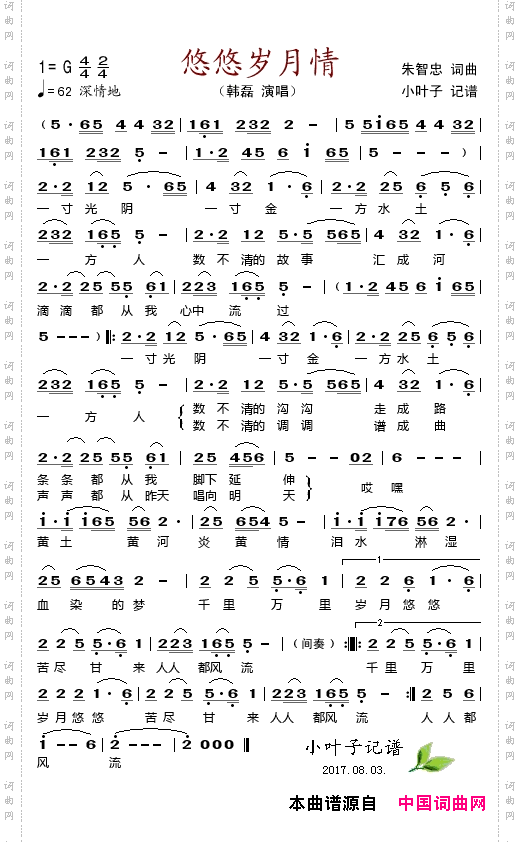 悠悠岁月情
1= G 4/4 2/4
朱智忠 词曲
♩= 62 深情地
（韩磊 演唱）
小叶子 记谱
（5· 65 4 4 32 | 161 232 2 - | 5 5i65 4 4 32 |
161 232 5 - | 1·2 45 6 i 65 | 5 - - - ）|
2·2 12 5 · 65 | 4 32 1·6 | 2·2 25 6 5 6 |
一寸光阴 一寸金 一方水土
232 165 5 - | 2·2 12 5·5 565 | 4 32 1·6 |
一方人 数不清的故事 汇成河
2·2 25 55 61 | 223 165 5 - | （1·2 456 i 65 |
滴滴都从我 心中流过
5 - - - ）‖: 2·2 12 5·65 | 4 32 1·6 | 2·2 25 6 5 6 |
一寸光阴 一寸金 一方水土
232 165 5 - | 2·2 12 5·5 565 | 4 32 1·6 |
一方人 数不清的沟沟 走成路
数不清的调调 谱成曲
2·2 25 55 61 | 25 456 5 | 5 - - 02 | 6 - - - |
条条都从我 脚下延伸 哎嘿
声声都从昨天 唱向明天
i·i i65 56 2 · | 25 654 5 - | i·i i76 56 2 · |
黄土 黄河 炎黄情 泪水 淋湿
25 6543 2 - | 2 2 5 5·6 1 | 1 2 2 6 1·6 |
血染的梦 千里万里 岁月悠悠
2 2 5 5·6 1 | 223 165 5 - |（间奏）:‖ 2 2 2 5 5·6 1 |
苦尽甘来 人人都风流 千里万里
2 2 2 1·6 | 2 2 5 5·6 1 | 223 165 5 - :‖ 2 2 2 6 |
岁月悠悠 苦尽甘来 人人都风流 人人都
1 - - 6 | 2 - - - | 2 000 ‖
风流
小叶子记谱
2017.08.03.
本曲谱源自 中国词曲网
词曲网